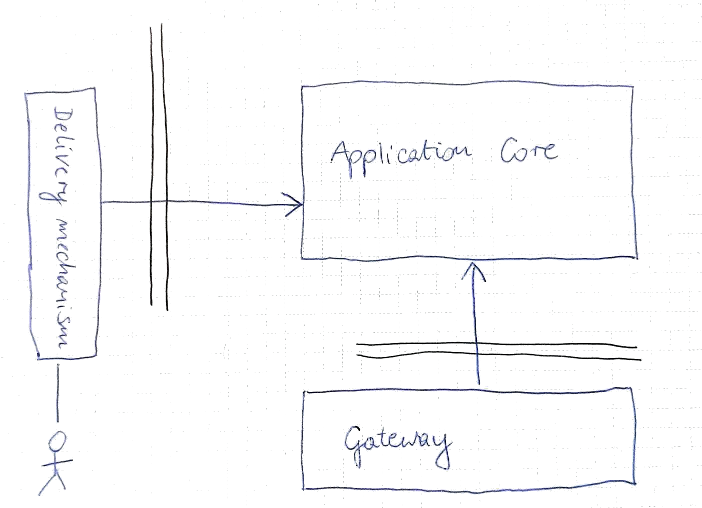 Delivery mechanism
Application Core
Gateway